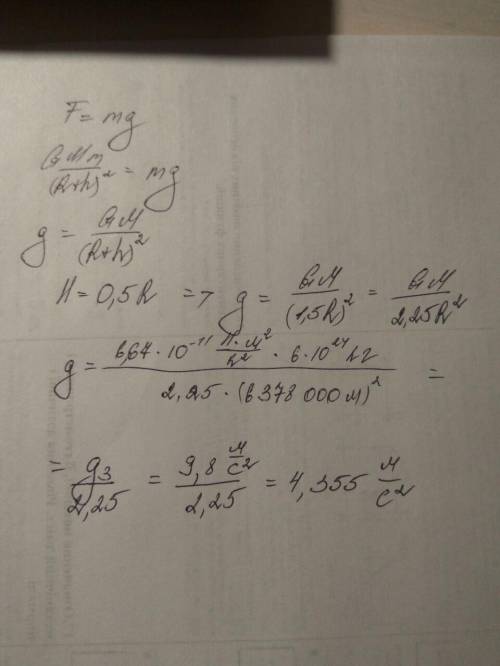 F = mg
GMm/(R+h)² = mg
g = GM/(R+h)²
H = 0,5R => g = GM/(1,5R)² = GM/2,25R²
g = 6,67·10⁻¹¹ Н·м²/кг² · 6·10²⁴ кг / 2,25·(6378000м)² =
= g₃/2,25 = 9,8 м/с² / 2,25 = 4,355 м/с²